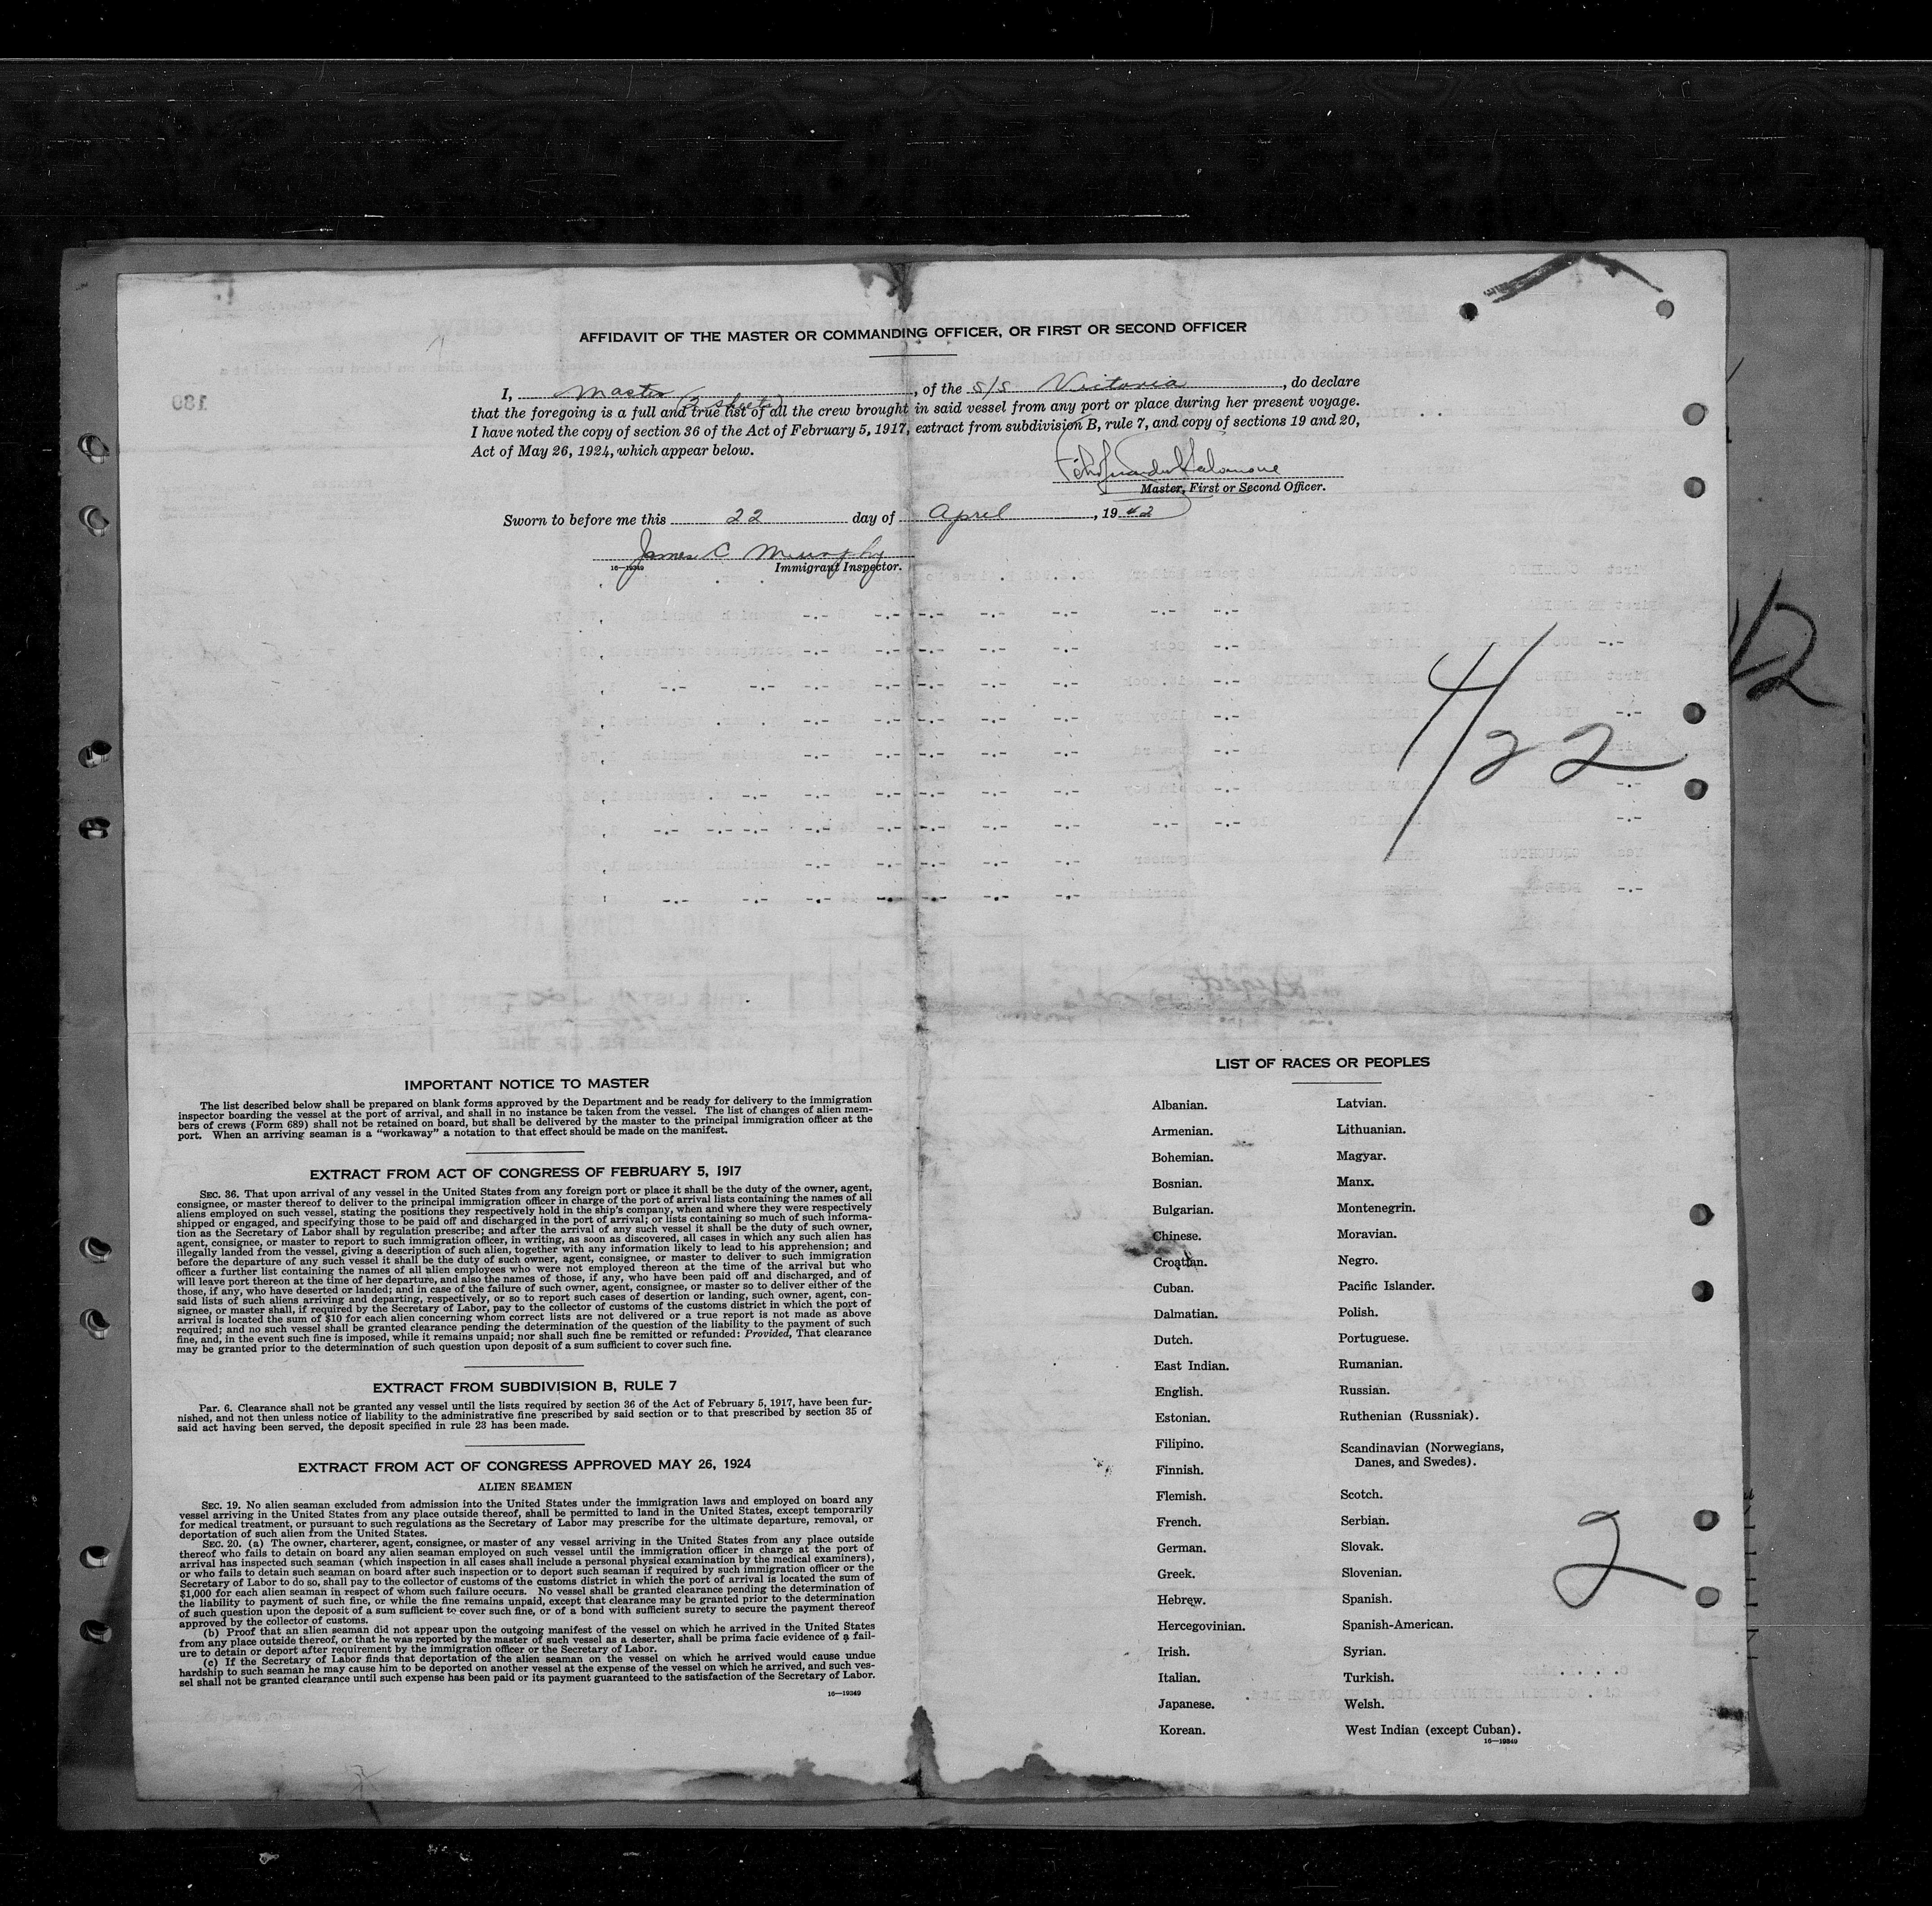 AFFIDAVIT OF THE MASTER OR COMMANDING OFFICER, OR FIRST OR SECOND OFFICER
I, Master (2 sheets), of the S/S Victoria, do declare
that the foregoing is a full and true list of all the crew brought in said vessel from any port or place during her present voyage.
I have noted the copy of section 36 of the Act of February 5, 1917, extract from subdivision B, rule 7, and copy of sections 19 and 20,
Act of May 26, 1924, which appear below.
Salomone
Master, First or Second Officer.
Sworn to before me this 22 day of April, 1942
James C Murphy
16—19349 Immigrant Inspector.
4/22
42
IMPORTANT NOTICE TO MASTER
The list described below shall be prepared on blank forms approved by the Department and be ready for delivery to the immigration
inspector boarding the vessel at the port of arrival, and shall in no instance be taken from the vessel. The list of changes of alien mem-
bers of crews (Form 689) shall not be retained on board, but shall be delivered by the master to the principal immigration officer at the
port. When an arriving seaman is a "workaway" a notation to that effect should be made on the manifest.
EXTRACT FROM ACT OF CONGRESS OF FEBRUARY 5, 1917
SEC. 36. That upon arrival of any vessel in the United States from any foreign port or place it shall be the duty of the owner, agent,
consignee, or master thereof to deliver to the principal immigration officer in charge of the port of arrival lists containing the names of all
aliens employed on such vessel, stating the positions they respectively hold in the ship's company, when and where they were respectively
shipped or engaged, and specifying those to be paid off and discharged in the port of arrival; or lists containing so much of such informa-
tion as the Secretary of Labor shall by regulation prescribe; and after the arrival of any such vessel it shall be the duty of such owner,
agent, consignee, or master to report to such immigration officer, in writing, as soon as discovered, all cases in which any such alien has
illegally landed from the vessel, giving a description of such alien, together with any information likely to lead to his apprehension; and
before the departure of any such vessel it shall be the duty of such owner, agent, consignee, or master to deliver to such immigration
officer a further list containing the names of all alien employees who were not employed thereon at the time of the arrival but who
will leave port thereon at the time of her departure, and also the names of those, if any, who have been paid off and discharged, and of
those, if any, who have deserted or landed; and in case of the failure of such owner, agent, consignee, or master so to deliver either of the
said lists of such aliens arriving and departing, respectively, or so to report such cases of desertion or landing, such owner, agent, con-
signee, or master shall, if required by the Secretary of Labor, pay to the collector of customs of the customs district in which the port of
arrival is located the sum of $10 for each alien concerning whom correct lists are not delivered or a true report is not made as above
required; and no such vessel shall be granted clearance pending the determination of the question of the liability to the payment of such
fine, and, in the event such fine is imposed, while it remains unpaid; nor shall such fine be remitted or refunded: Provided, That clearance
may be granted prior to the determination of such question upon deposit of a sum sufficient to cover such fine.
EXTRACT FROM SUBDIVISION B, RULE 7
Par. 6. Clearance shall not be granted any vessel until the lists required by section 36 of the Act of February 5, 1917, have been fur-
nished, and not then unless notice of liability to the administrative fine prescribed by said section or to that prescribed by section 35 of
said act having been served, the deposit specified in rule 23 has been made.
EXTRACT FROM ACT OF CONGRESS APPROVED MAY 26, 1924
ALIEN SEAMEN
SEC. 19. No alien seaman excluded from admission into the United States under the immigration laws and employed on board any
vessel arriving in the United States from any place outside thereof, shall be permitted to land in the United States, except temporarily
for medical treatment, or pursuant to such regulations as the Secretary of Labor may prescribe for the ultimate departure, removal, or
deportation of such alien from the United States.
SEC. 20. (a) The owner, charterer, agent, consignee, or master of any vessel arriving in the United States from any place outside
thereof who fails to detain on board any alien seaman employed on such vessel until the immigration officer in charge at the port of
arrival has inspected such seaman (which inspection in all cases shall include a personal physical examination by the medical examiners),
or who fails to detain such seaman on board after such inspection or to deport such seaman if required by such immigration officer or the
Secretary of Labor to do so, shall pay to the collector of customs of the customs district in which the port of arrival is located the sum of
$1,000 for each alien seaman in respect of whom such failure occurs. No vessel shall be granted clearance pending the determination of
the liability to payment of such fine, or while the fine remains unpaid, except that clearance may be granted prior to the determination
of such question upon the deposit of a sum sufficient to cover such fine, or of a bond with sufficient surety to secure the payment thereof
approved by the collector of customs.
(b) Proof that an alien seaman did not appear upon the outgoing manifest of the vessel on which he arrived in the United States
from any place outside thereof, or that he was reported by the master of such vessel as a deserter, shall be prima facie evidence of a fail-
ure to detain or deport after requirement by the immigration officer or the Secretary of Labor.
(c) If the Secretary of Labor finds that deportation of the alien seaman on the vessel on which he arrived would cause undue
hardship to such seaman he may cause him to be deported on another vessel at the expense of the vessel on which he arrived, and such ves-
sel shall not be granted clearance until such expense has been paid or its payment guaranteed to the satisfaction of the Secretary of Labor.
16—19349
LIST OF RACES OR PEOPLES
Albanian.
Armenian.
Bohemian.
Bosnian.
Bulgarian.
Chinese.
Croatian.
Cuban.
Dalmatian.
Dutch.
East Indian.
English.
Estonian.
Filipino.
Finnish.
Flemish.
French.
German.
Greek.
Hebrew.
Hercegovinian.
Irish.
Italian.
Japanese.
Korean.
Latvian.
Lithuanian.
Magyar.
Manx.
Montenegrin.
Moravian.
Negro.
Pacific Islander.
Polish.
Portuguese.
Rumanian.
Russian.
Ruthenian (Russniak).
Scandinavian (Norwegians,
Danes, and Swedes).
Scotch.
Serbian.
Slovak.
Slovenian.
Spanish.
Spanish-American.
Syrian.
Turkish.
Welsh.
West Indian (except Cuban).
16—19349
2